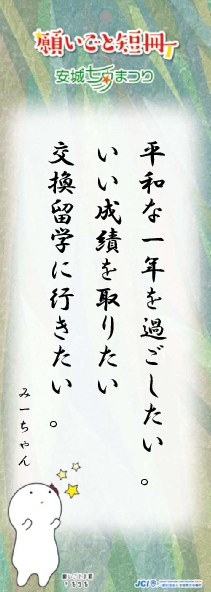 願いごと短冊
安城七夕まつり
平和な一年を過ごしたい。
いい成績を取りたい
交換留学に行きたい。
みーちゃん
JCI